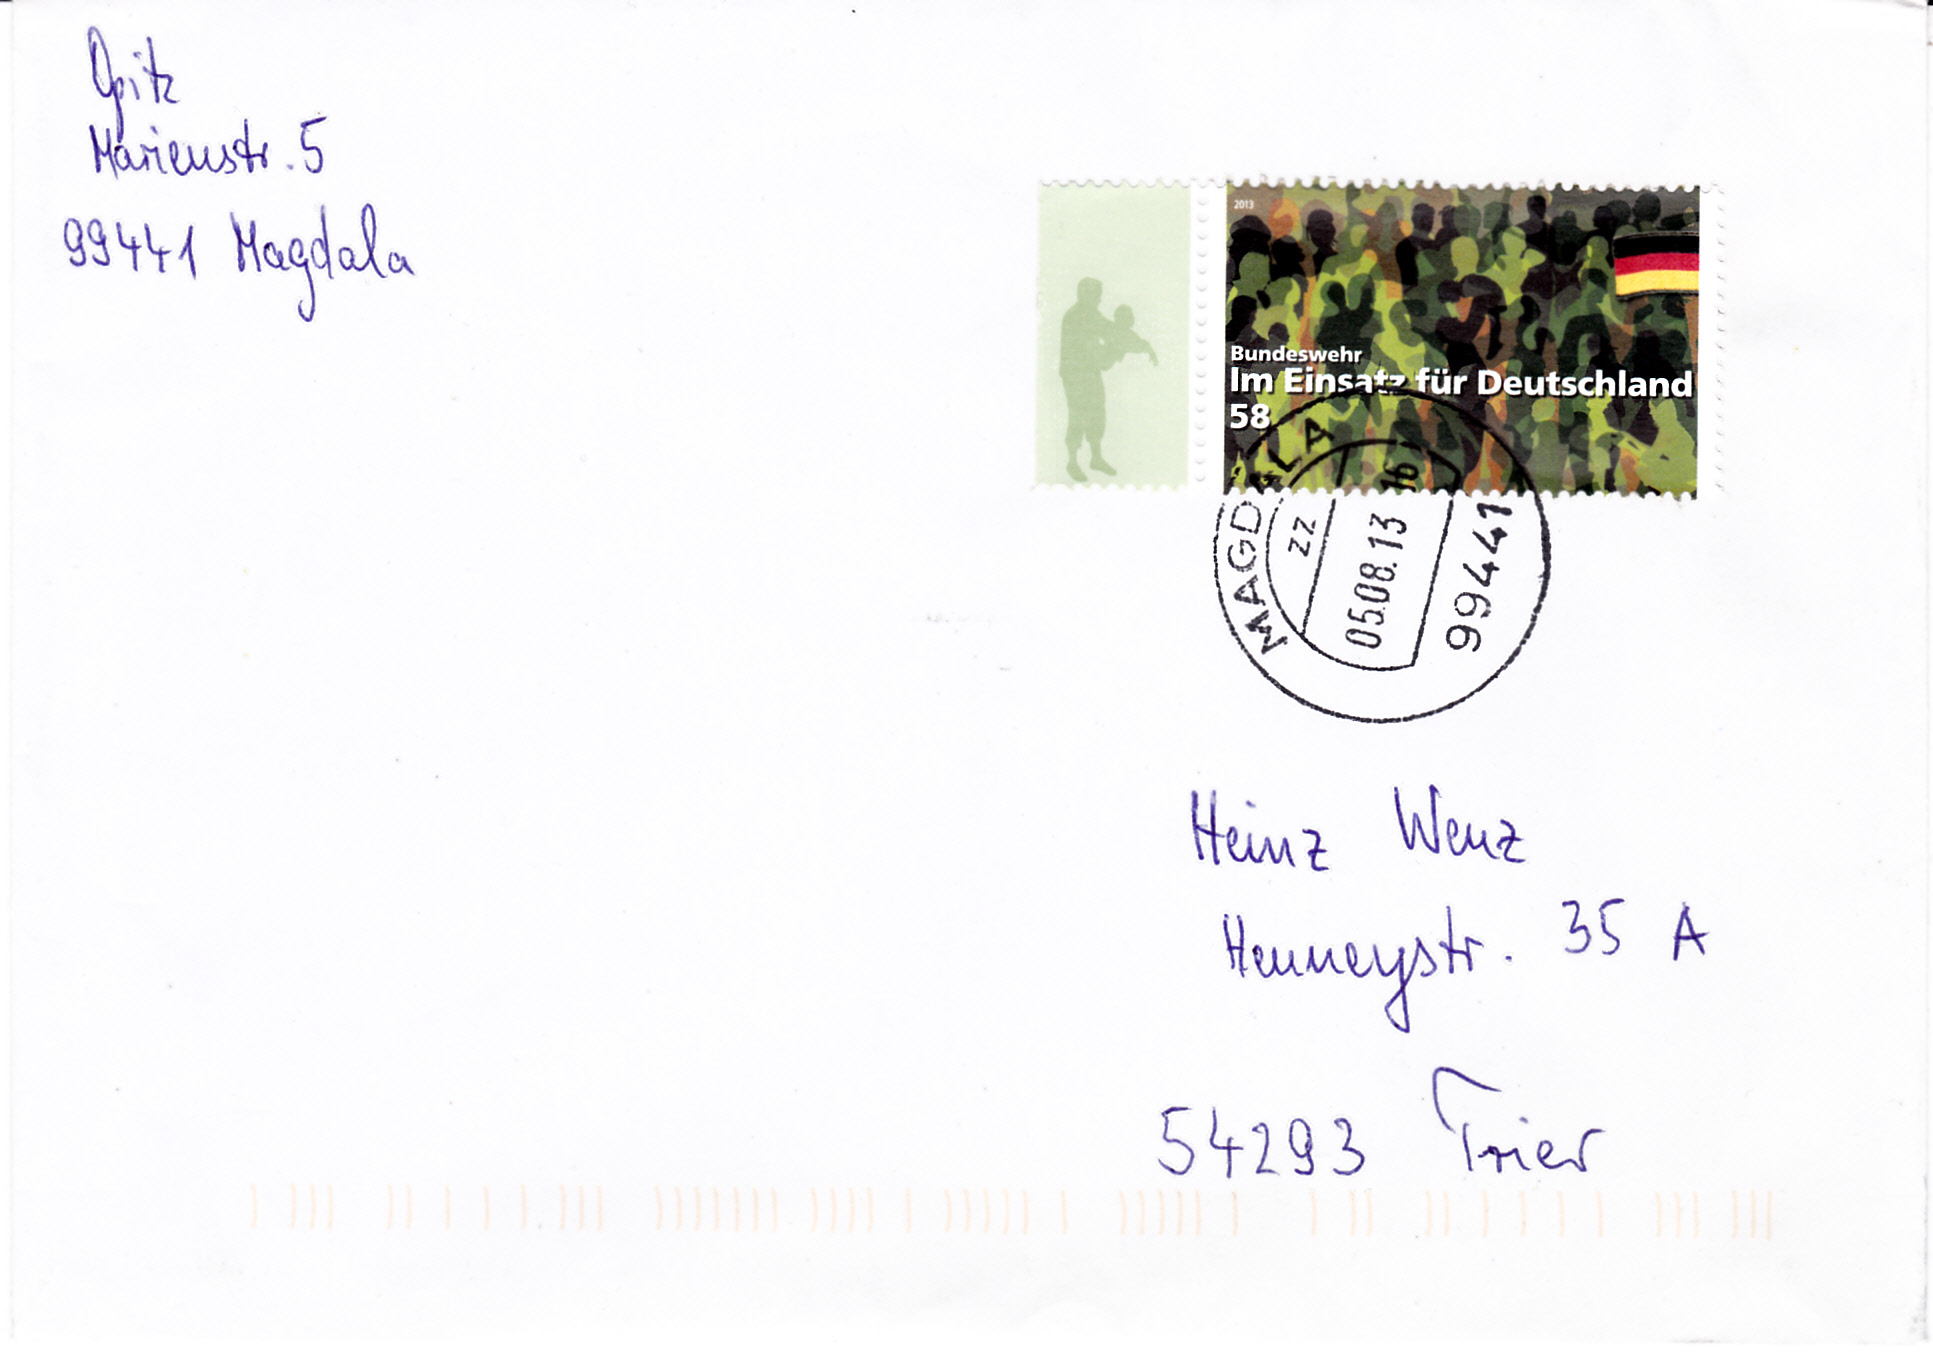 Opitz
Marienstr. 5
99441 Magdala
2013
Bundeswehr
Im Einsatz für Deutschland
58
MAGDALA
zz
05.08.13 16
99441
Heinz Wenz
Henneystr. 35 A
54293 Trier